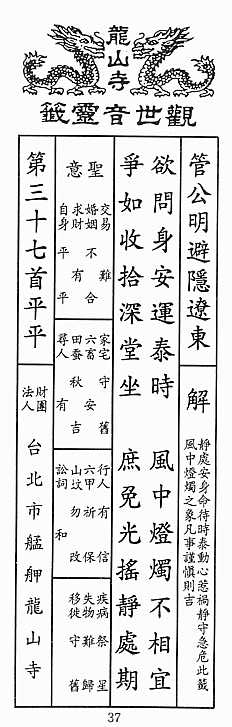 龍山寺
觀世音靈籤
管公明避隱遼東
解
靜處安身命待時泰動心惹禍靜守急危此籤
風中燈燭之象凡事謹慎則吉
欲問身安運泰時 風中燈燭不相宜
爭如收拾深堂坐 庶免光搖靜處期
聖意
交易 難
婚姻 不合
求財 有
自身 平平
家宅 守舊
六畜 安
田蚕 秋吉
尋人 有
行人 有信
六甲 祈保
山坟 勿改
訟詞 和
疾病 祭星
失物 難歸
移徙 守舊
第三十七首平平
財團
法人
台北市艋舺龍山寺
37